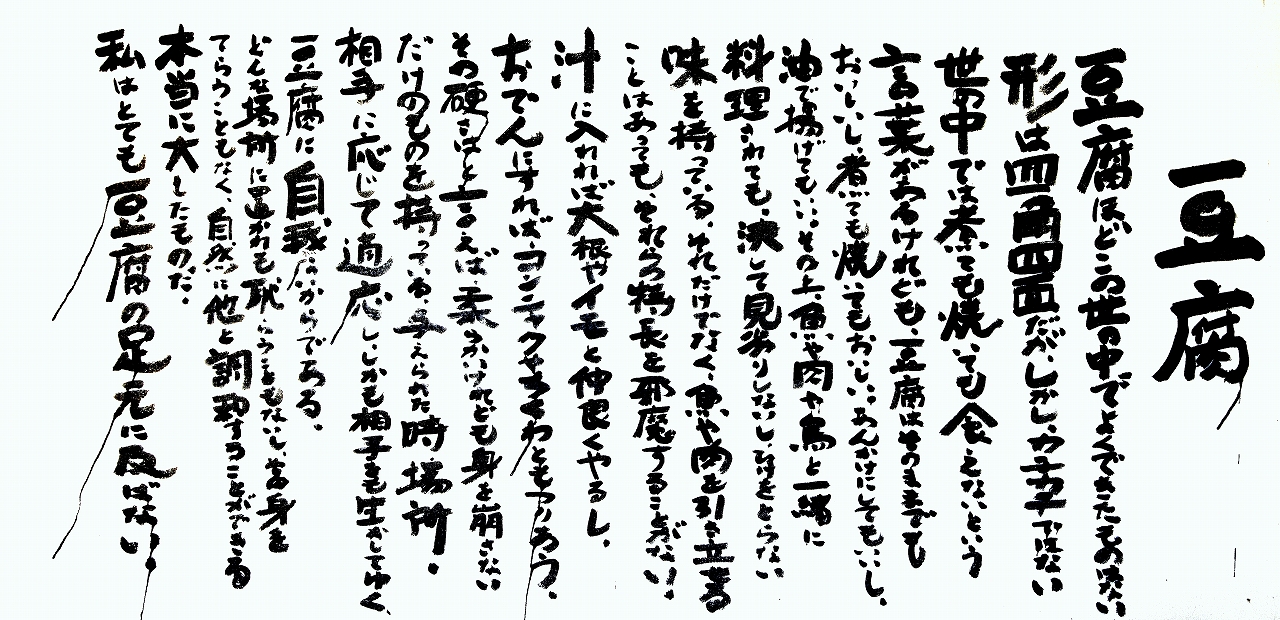 豆腐
豆腐ほどこの世の中でよくできたものはない
形は四角四面だが、しかし、わ子才ではない
世の中では煮ても焼いても食えないという
言葉があるけれども、豆腐はそのままでも
おいしいし、煮ても焼いてもおいしい。あんかけにしてもいいし、
油で揚げてもいい。その上、魚や肉や鳥と一緒に
料理されても、決して見劣りしないし、ひけをとらない
味を持っている。それだけでなく、魚や肉を引き立著る
ことはあっても、それらの特長を邪魔することがない。
汁に入れれば大根やイモと仲良くやるし、
おでんにすれば、コンニャクやちくわともやりあう、
その硬さはと言えば、柔かいけれども身を崩さない
だけのものを持っている。与えられた時、場所。
相手に応じて適応し、しかも相手をも生かしてゆく、
豆腐に自我がないからである。
どんな場所に置かれても恥らうこともないし、当身を
てらうこともなく、自然に他と調和することができる
本当に大したものだ。
私はとても豆腐の足元に及ばない。